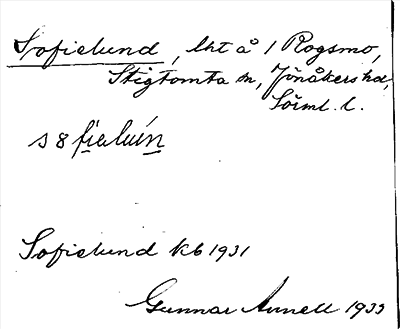 Sofielund, lht å 1 Rogsmo,
Stigtomta sn, Jönåkers hd,
Sörml. l.
s8fielu̇n
Sofielund kb 1931
Gunnar Annell 1933